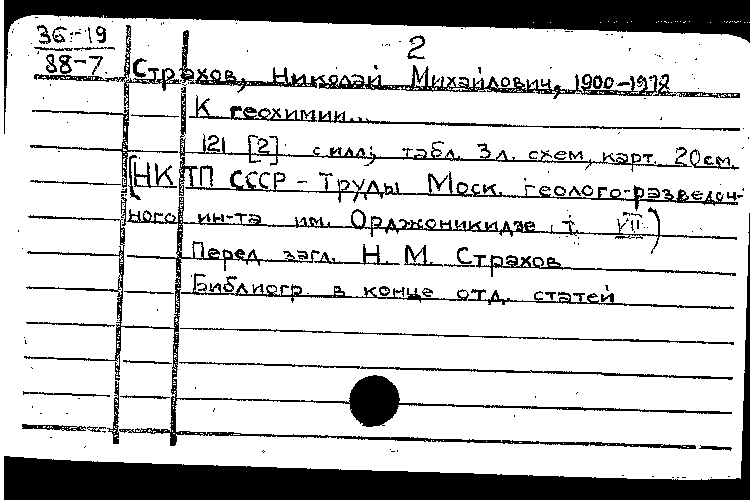 36-19
88-7
2
Страхов, Николай Михайлович, 1900-1978
К геохимии...
121 [2] с илл; табл. 3л. схем, карт. 20см.
(НКТП СССР - Труды Моск. геолого-разведоч-
ного ин-та им. Орджоникидзе, т. VII)
Перед загл. Н. М. Страхов
Библиогр в конце отд. статей